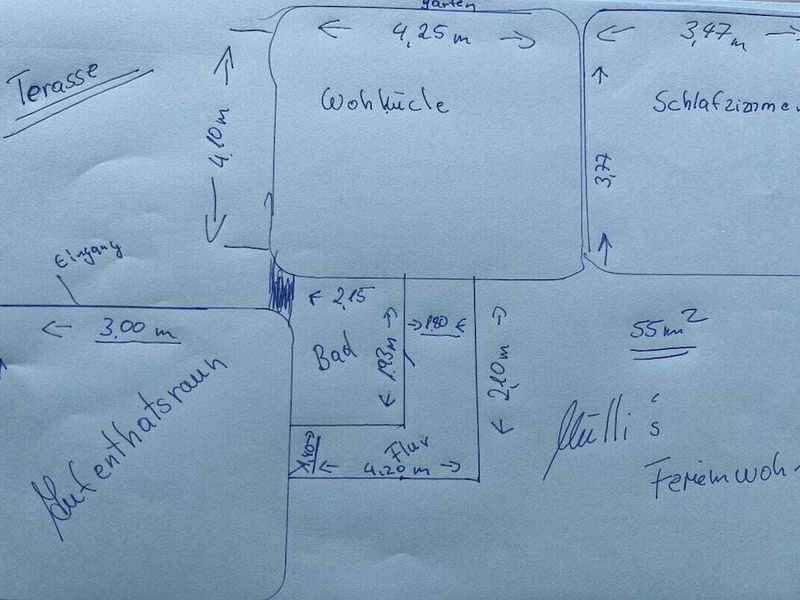 garten
4,25 m
3,47 m
Terasse
Wohküche
Schlafzimmer
4,10 m
3,77
Eingang
2,15
3,00 m
Bad
1,93 m
1,80
2,10 m
55 m²
Aufenthatsraum
Flur
4,20 m
Mülli's
Ferienwoh